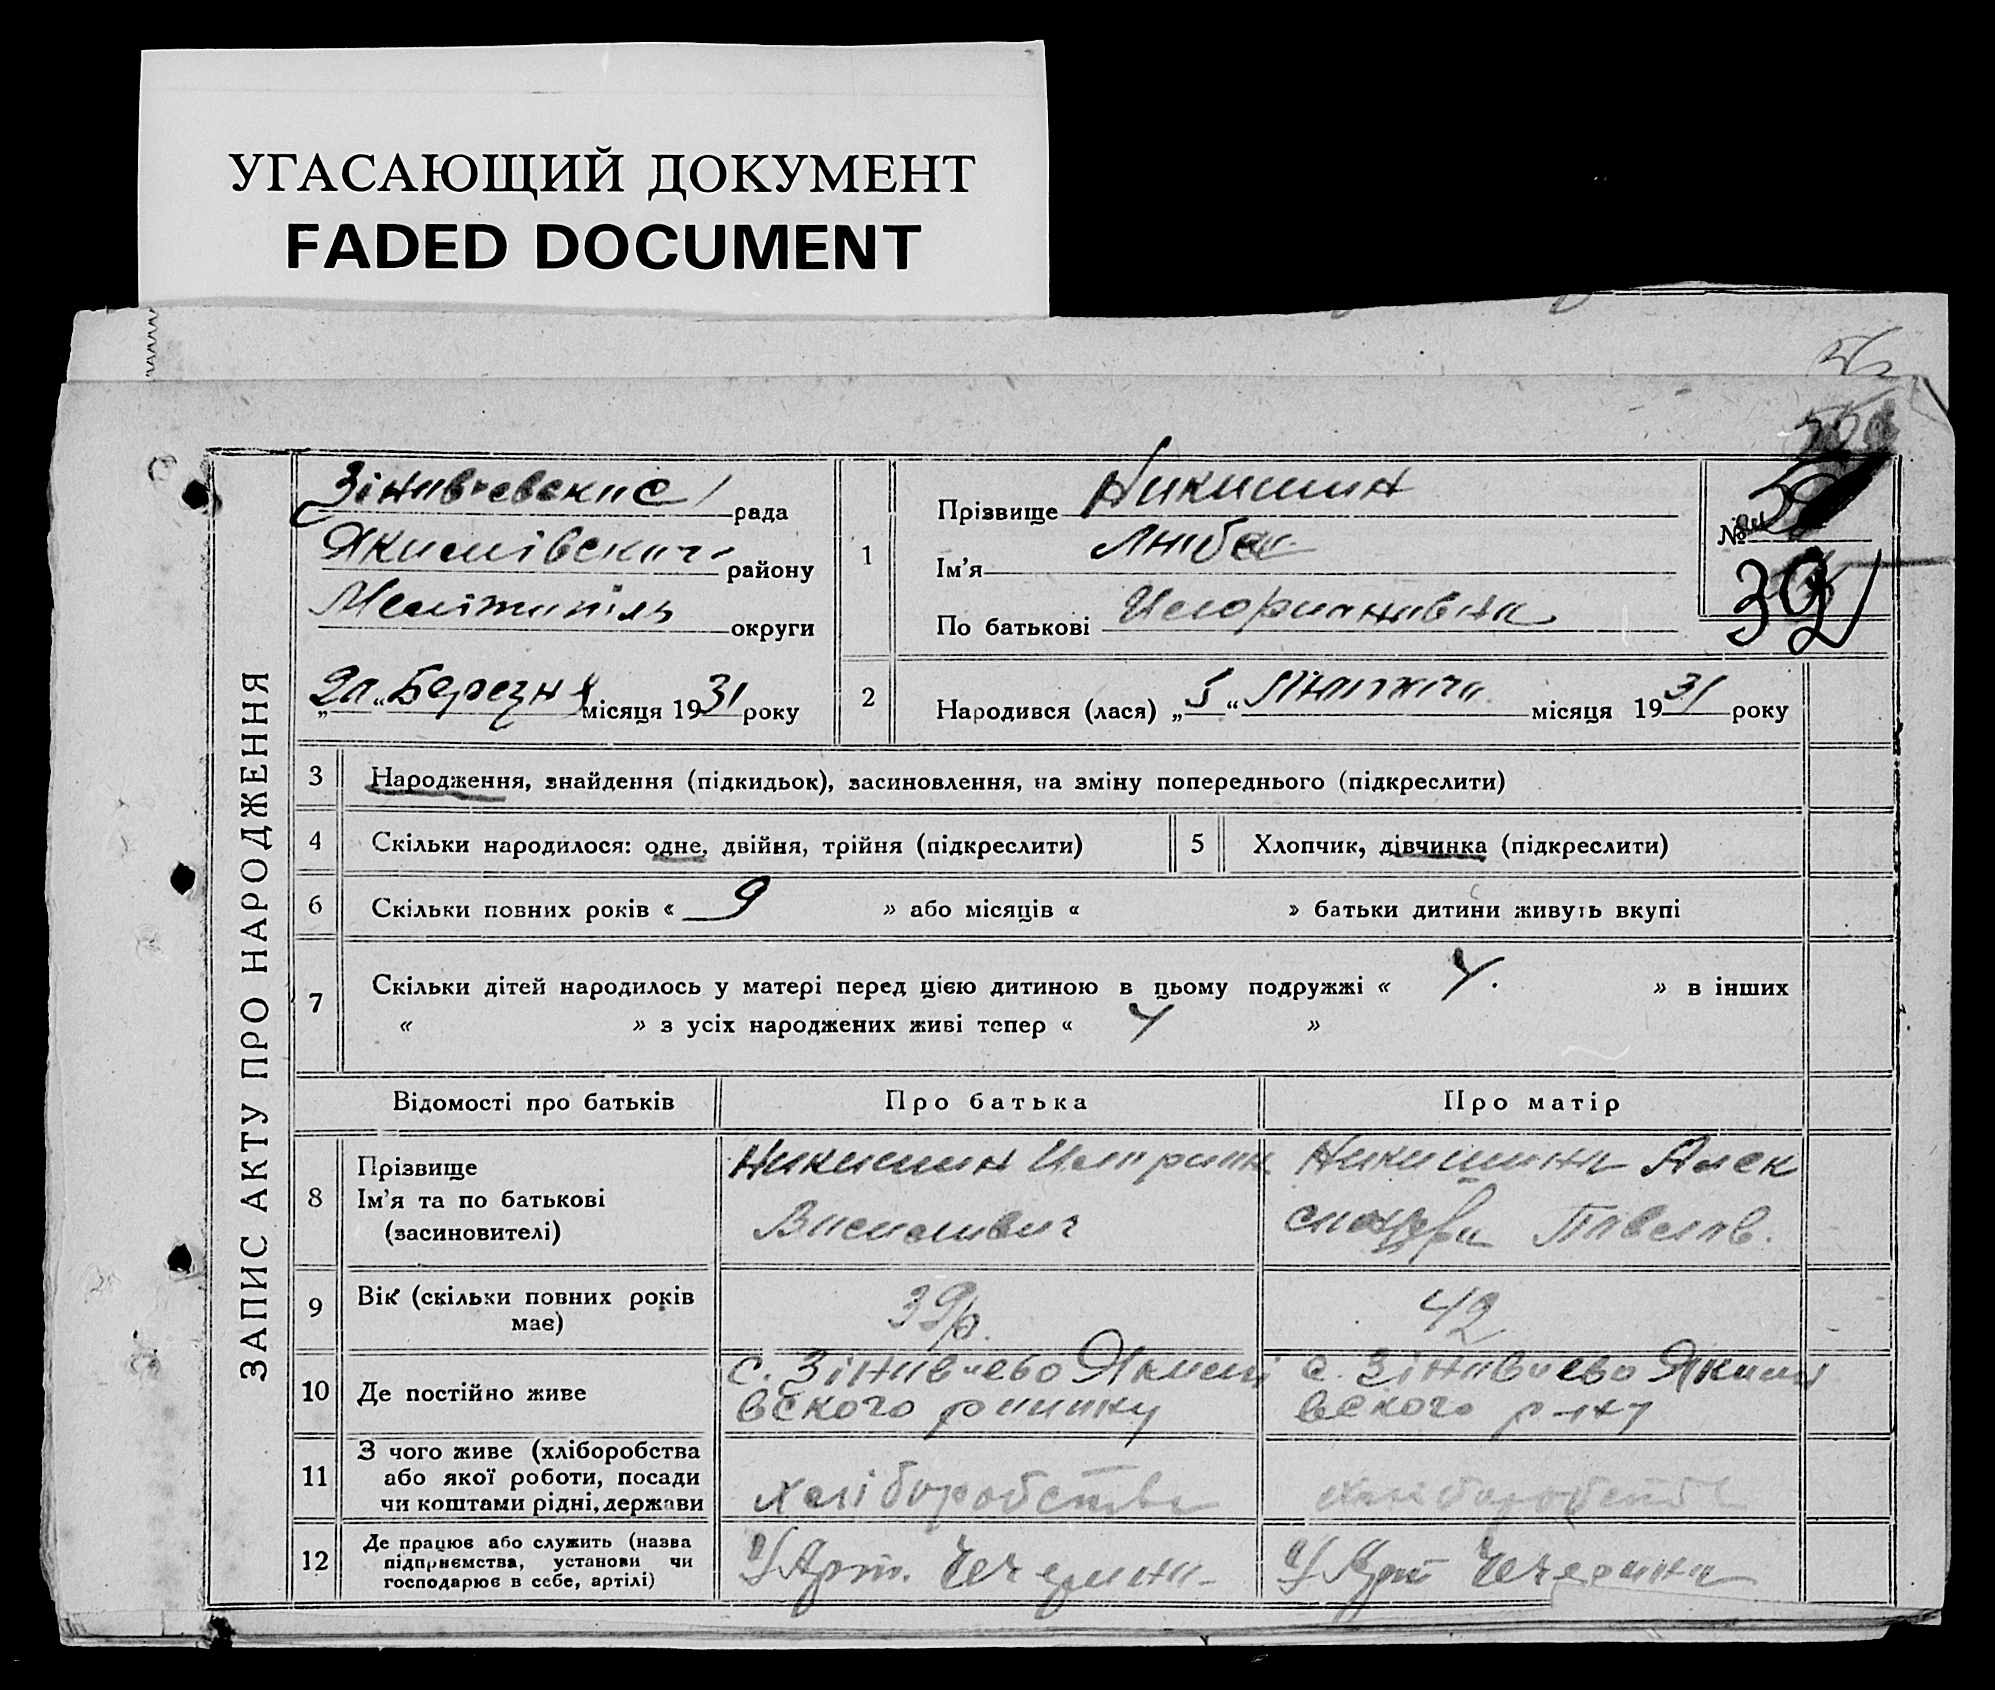 УГАСАЮЩИЙ ДОКУМЕНТ
FADED DOCUMENT
ЗАПИС АКТУ ПРО НАРОДЖЕННЯ
рада
Якимівский району
Мелітопіль округи
Березня місяця 1931 року
1
Прізвище Никишин
Ім'я Люба
По батькові
№
39
2 Народився (лася) „5“ Лютого місяця 1931 року
3 Народження, знайдення (підкидьок), засиновлення, на зміну попереднього (підкреслити)
4 Скільки народилося: одне, двійня, трійня (підкреслити)
5 Хлопчик, дівчинка (підкреслити)
6 Скільки повних років « 9 » або місяців « » батьки дитини живуть вкупі
7 Скільки дітей народилось у матері перед цією дитиною в цьому подружжі « 4. » в інших
« » з усіх народжених живі тепер « 4 »
Відомості про батьків
Про батька
Про матір
8
Прізвище
Ім'я та по батькові
(засиновителі)
Никишин
Василович
Никишина Алек
сандра Павлов.
9
Вік (скільки повних років
має)
39 р.
42
10 Де постійно живе
с. Якимі
вского району
с. Якими
вского р-ну
11
З чого живе (хліборобства
або якої роботи, посади
чи коштами рідні, держави
хліборобства
хліборобства
12
Де працює або служить (назва
підприємства, установи чи
господарює в себе, артілі)
У Арт. Чечерина
У Арт Чечерина